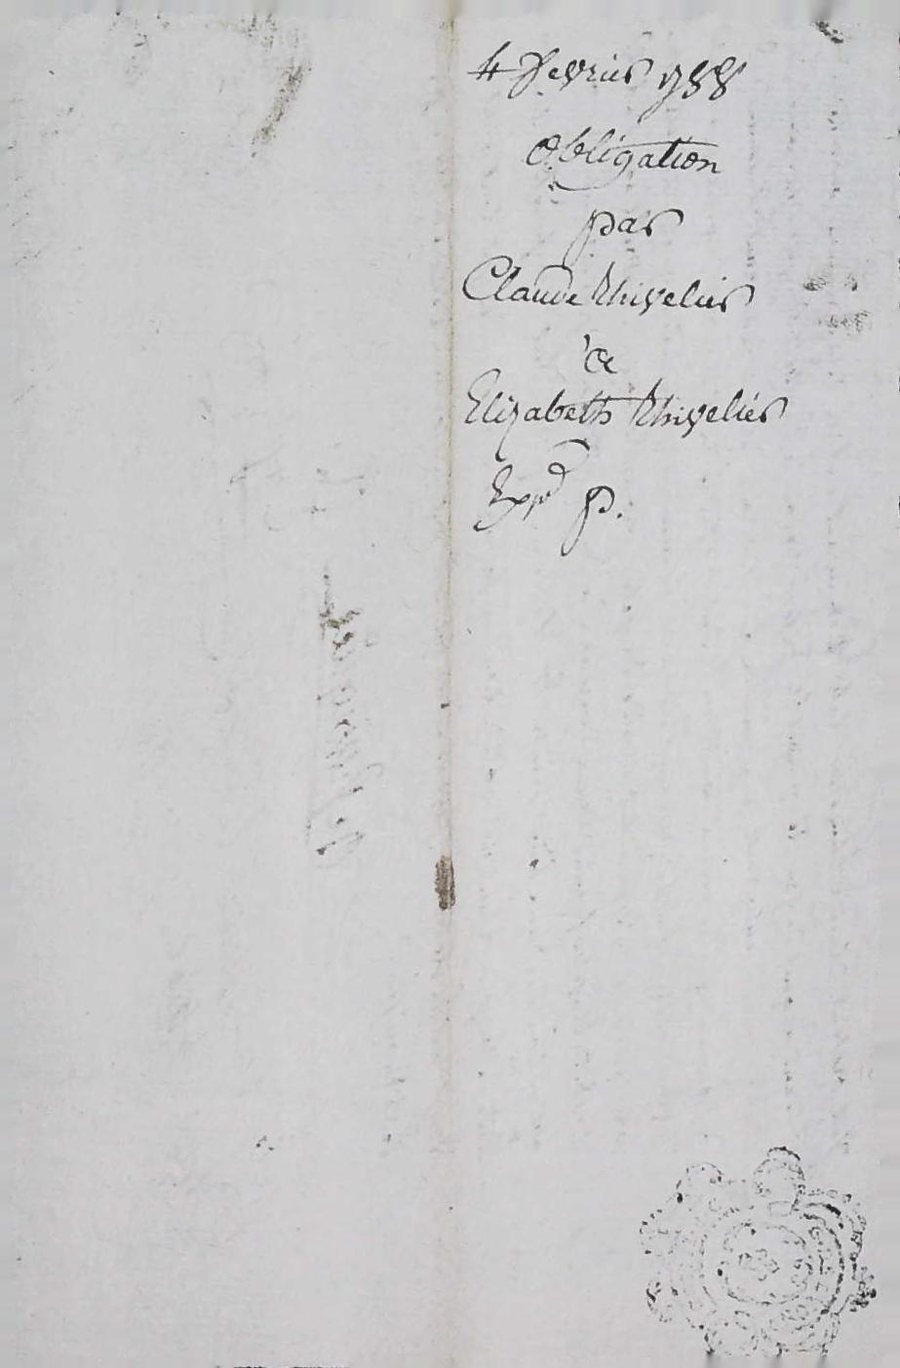 4 Fevrier 1788
Obligation
par
Claude Thivelier
a
Elizabeth Thivelier
Exp.d p.